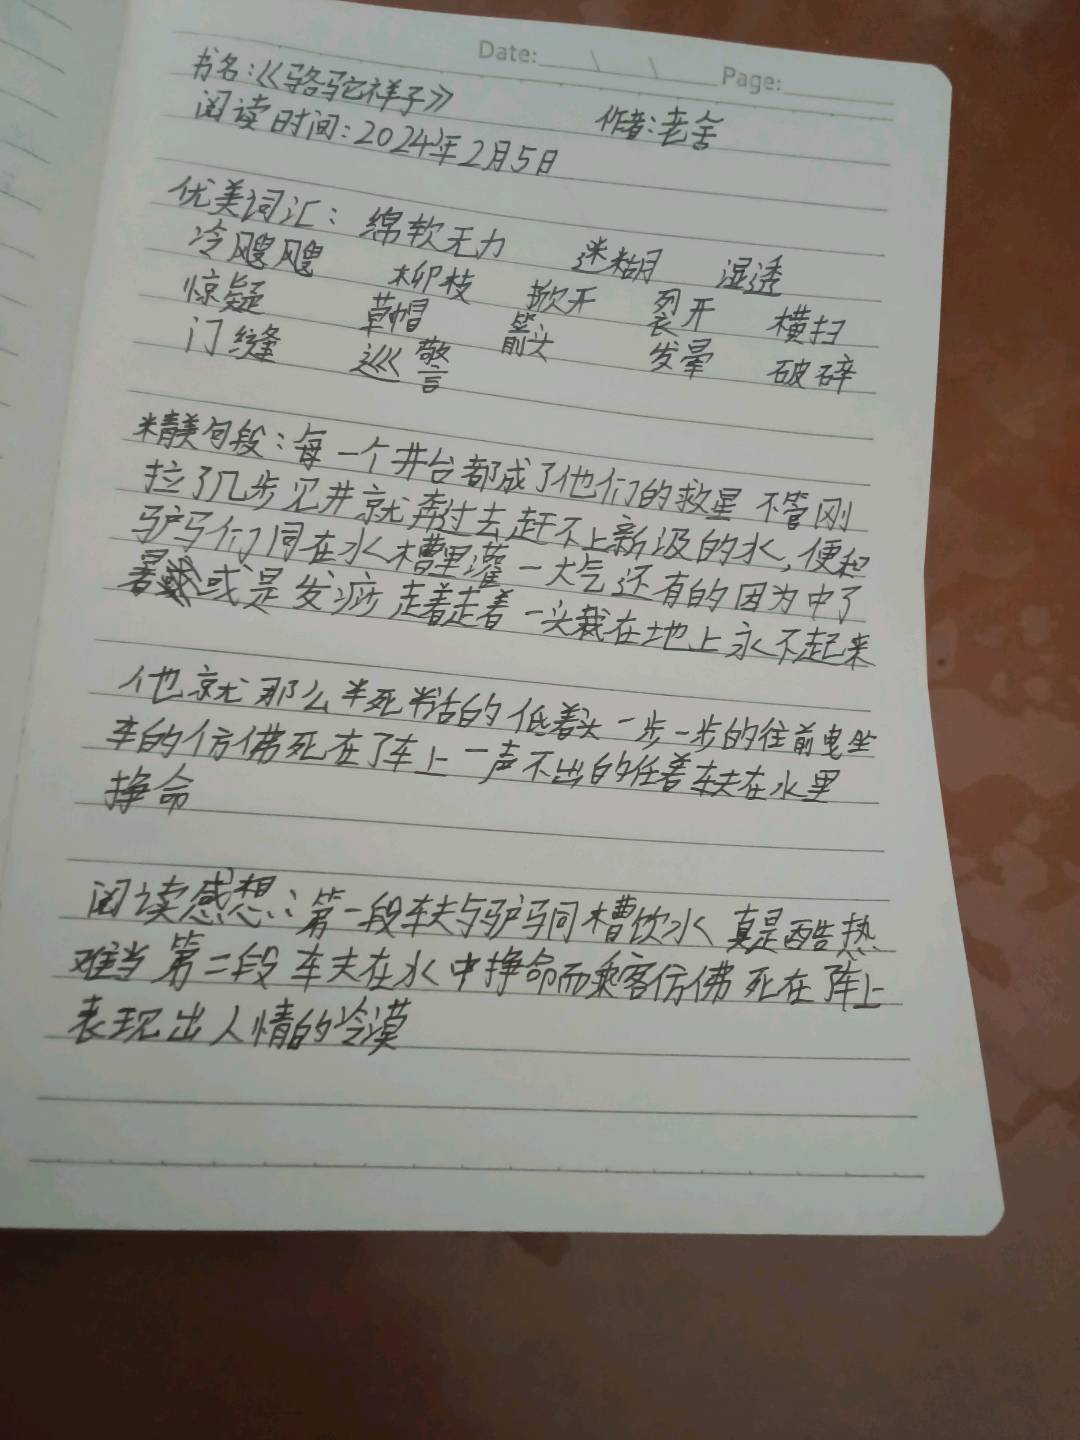 Date: \ \ Page:
书名:《骆驼祥子》 作者:老舍
阅读时间:2024年2月5日
优美词汇: 绵软无力 迷糊 湿透
冷飕飕 柳枝 掀开 裂开 横扫
惊疑 草帽 箭头 发晕 破碎
门缝 巡警
精美句段:每一个井台都成了他们的救星 不管刚
拉了几步见井就奔过去赶不上新汲的水,便和
驴马们同在水槽里灌一大气还有的因为中了
暑或是发痧 走着走着一头栽在地上永不起来
他就那么半死半活的低着头一步一步的往前曳坐
车的仿佛死在了车上一声不出的任着车夫在水里
挣命
阅读感想:第一段车夫与驴马同槽饮水 真是酷热
难当 第二段车夫在水中挣命而乘客仿佛死在了车上
表现出人情的冷漠